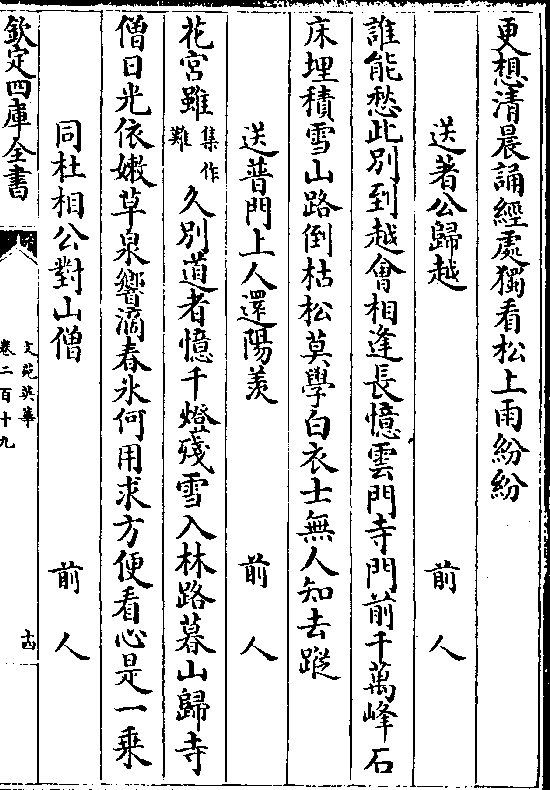 更想清晨誦經處獨看松上雨紛紛
送著公歸越 前人
誰能愁此別到越會相逢長憶雲門寺門前千萬峰石
床埋積雪山路倒枯松莫學白衣士無人知去蹤
送普門上人還陽羨 前人
花宮雖集作難久別道者憶千燈殘雪入林路暮山歸寺
僧日光依嫩草泉響滴春氷何用求方便看心是一乗
同杜相公對山僧 前人
欽定四庫全書
文苑英華
卷二百十九
十四